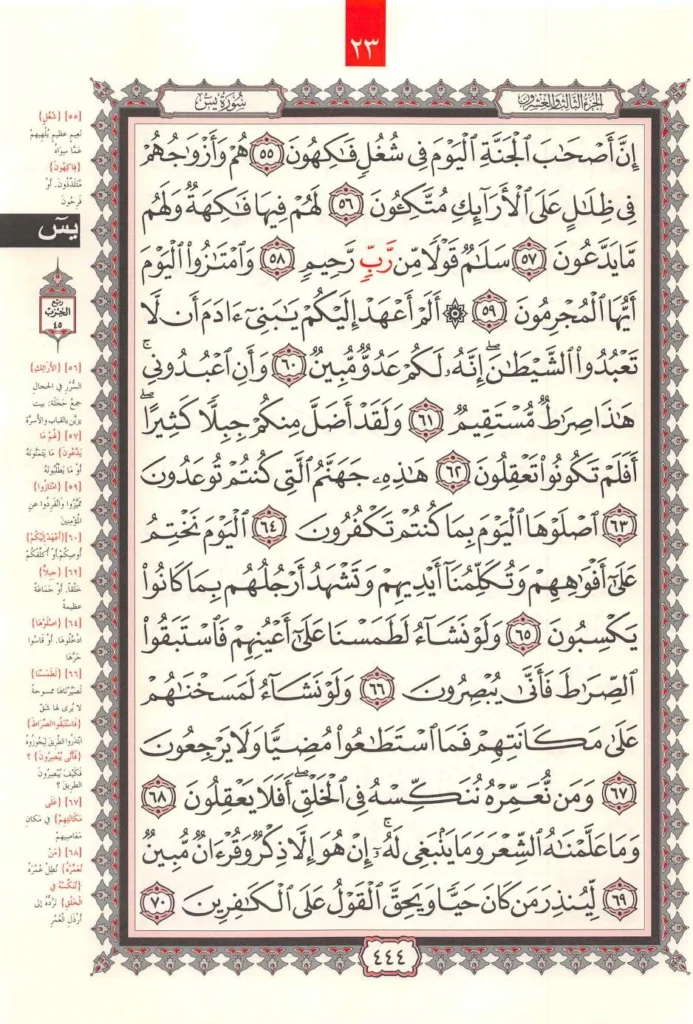 ٢٣
سُورَةُ يسٓ
الجُزءُ الثَّالِثُ وَالعِشرُونَ
إِنَّ أَصْحَٰبَ ٱلْجَنَّةِ ٱلْيَوْمَ فِى شُغُلٍ فَٰكِهُونَ ٥٥ هُمْ وَأَزْوَٰجُهُمْ
فِى ظِلَٰلٍ عَلَى ٱلْأَرَآئِكِ مُتَّكِـُٔونَ ٥٦ لَهُمْ فِيهَا فَٰكِهَةٌ وَلَهُم
مَّا يَدَّعُونَ ٥٧ سَلَٰمٌ قَوْلًا مِّن رَّبٍّ رَّحِيمٍ ٥٨ وَٱمْتَٰزُوا۟ ٱلْيَوْمَ
أَيُّهَا ٱلْمُجْرِمُونَ ٥٩ ۞ أَلَمْ أَعْهَدْ إِلَيْكُمْ يَٰبَنِىٓ ءَادَمَ أَن لَّا
تَعْبُدُوا۟ ٱلشَّيْطَٰنَ ۖ إِنَّهُۥ لَكُمْ عَدُوٌّ مُّبِينٌ ٦٠ وَأَنِ ٱعْبُدُونِى ۚ
هَٰذَا صِرَٰطٌ مُّسْتَقِيمٌ ٦١ وَلَقَدْ أَضَلَّ مِنكُمْ جِبِلًّا كَثِيرًا ۖ
أَفَلَمْ تَكُونُوا۟ تَعْقِلُونَ ٦٢ هَٰذِهِۦ جَهَنَّمُ ٱلَّتِى كُنتُمْ تُوعَدُونَ
٦٣ ٱصْلَوْهَا ٱلْيَوْمَ بِمَا كُنتُمْ تَكْفُرُونَ ٦٤ ٱلْيَوْمَ نَخْتِمُ
عَلَىٰٓ أَفْوَٰهِهِمْ وَتُكَلِّمُنَآ أَيْدِيهِمْ وَتَشْهَدُ أَرْجُلُهُم بِمَا كَانُوا۟
يَكْسِبُونَ ٦٥ وَلَوْ نَشَآءُ لَطَمَسْنَا عَلَىٰٓ أَعْيُنِهِمْ فَٱسْتَبَقُوا۟
ٱلصِّرَٰطَ فَأَنَّىٰ يُبْصِرُونَ ٦٦ وَلَوْ نَشَآءُ لَمَسَخْنَٰهُمْ
عَلَىٰ مَكَانَتِهِمْ فَمَا ٱسْتَطَٰعُوا۟ مُضِيًّا وَلَا يَرْجِعُونَ
٦٧ وَمَن نُّعَمِّرْهُ نُنَكِّسْهُ فِى ٱلْخَلْقِ ۖ أَفَلَا يَعْقِلُونَ ٦٨
وَمَا عَلَّمْنَٰهُ ٱلشِّعْرَ وَمَا يَنۢبَغِى لَهُۥٓ ۚ إِنْ هُوَ إِلَّا ذِكْرٌ وَقُرْءَانٌ مُّبِينٌ
٦٩ لِّيُنذِرَ مَن كَانَ حَيًّا وَيَحِقَّ ٱلْقَوْلُ عَلَى ٱلْكَٰفِرِينَ ٧٠
٤٤٤
[٥٥] {شُغُلٍ}
نَعِيمٍ عَظِيمٍ يُلْهِيهِمْ
عَمَّا سِوَاهُ
{فَاكِهُونَ}
مُتَلَذِّذُونَ. أَوْ
فَرِحُونَ
يسٓ
رُبع
الحِزب
٤٥
[٥٦] {الأَرَائِكِ}
السُّرُرِ فِي الحِجَالِ
جمعُ حَجَلَة: بيت
يزيّن بالقباب والأسرّة
[٥٧] {لَهُمْ مَا
يَدَّعُونَ} مَا يَتَمَنَّوْنَهُ
أَوْ مَا يَطْلُبُونَهُ
[٥٩] {امْتَازُوا}
تَمَيَّزُوا وَانْفَرِدُوا عَنِ
المُؤْمِنِينَ
[٦٠] {أَعْهَدْ إِلَيْكُمْ}
أُوصِكُمْ أَوْ أُكَلِّفْكُمْ
[٦٢] {جِبِلًّا}
خَلْقًا. أَوْ جَمَاعَةً
عَظِيمَةً
[٦٤] {اصْلَوْهَا}
ادْخُلُوهَا. أَوْ قَاسُوا
حَرَّهَا
[٦٦] {لَطَمَسْنَا}
لَصَيَّرْنَاهَا مَمْسُوحَةً
لا يُرى لها شَقّ
{فَاسْتَبَقُوا الصِّرَاطَ}
ابْتَدَرُوا الطَّرِيقَ لِيَجُوزُوهُ
{فَأَنَّى يُبْصِرُونَ} ؟
فَكَيْفَ يُبْصِرُونَ
الطريق ؟
[٦٧] {عَلَى
مَكَانَتِهِمْ} فِي مَكَانِ
مَعَاصِيهِمْ
[٦٨] {مَنْ
نُعَمِّرْهُ} نُطِلْ عُمُرَهُ
{نُنَكِّسْهُ فِي
الْخَلْقِ} نَرُدُّهُ إِلَى
أَرْذَلِ الْعُمُرِ